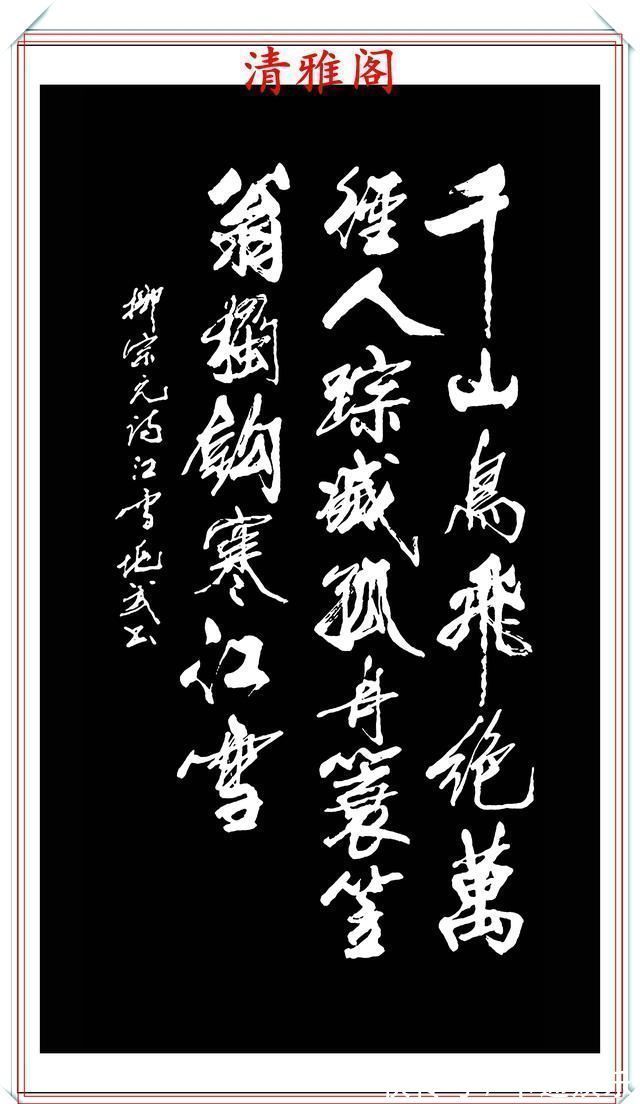 清雅阁
千山鳥飛绝萬
徑人踪滅孤舟簑笠
翁獨釣寒江雪
柳宗元诗江雪